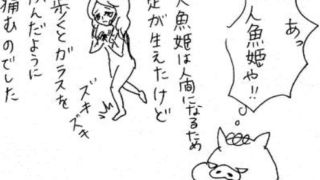 あっ
人魚姫や!!
人魚姫は人間になるため
足が生えたけど
歩くとガラスを
踏んだように
痛むのでした
ズキズキ